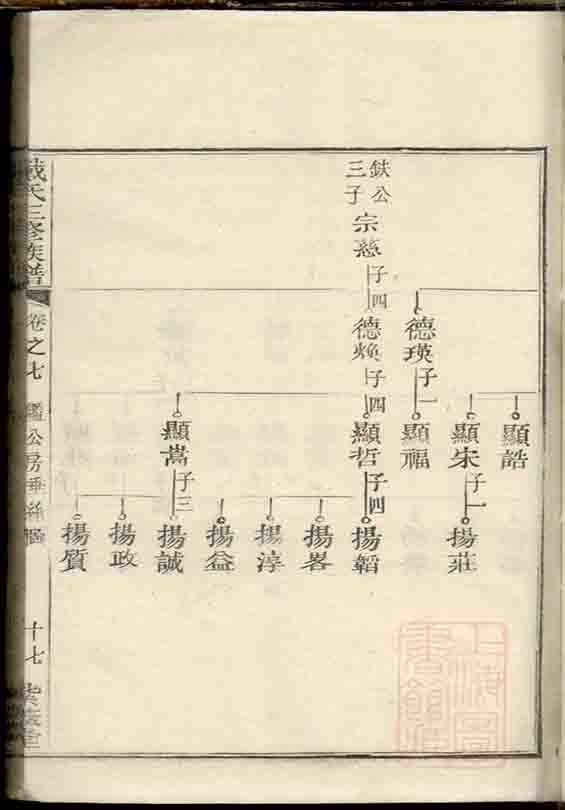 顯誥
顯朱
子一
揚莊
德瑛
子一
顯福
鈥公
三子
宗慈
子四
德煥
子四
顯哲
子四
揚韜
揚畧
揚淳
揚益
顯嵩
子三
揚誠
揚政
揚質
戴氏三修族譜
卷之七
公房垂絲圖
十七
上海圖書館藏